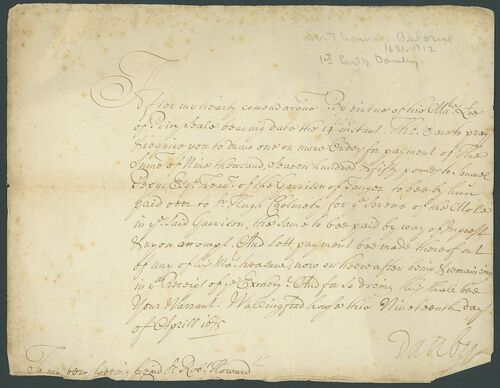 Sir Thomas Osborne
1631-1712
1st Earl of Danby.
After my hearty comendacons. By virtue of his Ma:ts Lre
of Privy Seale bearing date the instant. These are to pray
& require you to draw one or more Orders for payment of The
Sume of Nine thousand, Seaven hundred & fifty pounds to Samuel
Pepys Esqr. Trear. of the Garrison of Tanger to bee by him
paid over to Sr. Hugh Cholmely for ye. service of the Mole
in ye. said Garrison, the same to bee paid by way of Imprest
& upon accompt. And lett payment bee made thereof out
of any of his Mats. treasure, now or hereafter being & remaining
in ye. Receipt of ye. Exchqr. And for so doeing this shall bee
Your Warrant. Wallingford house this Nineteenth day
of Aprill 1675
Danby
To my very loveing friend Sr. Robt. Howard